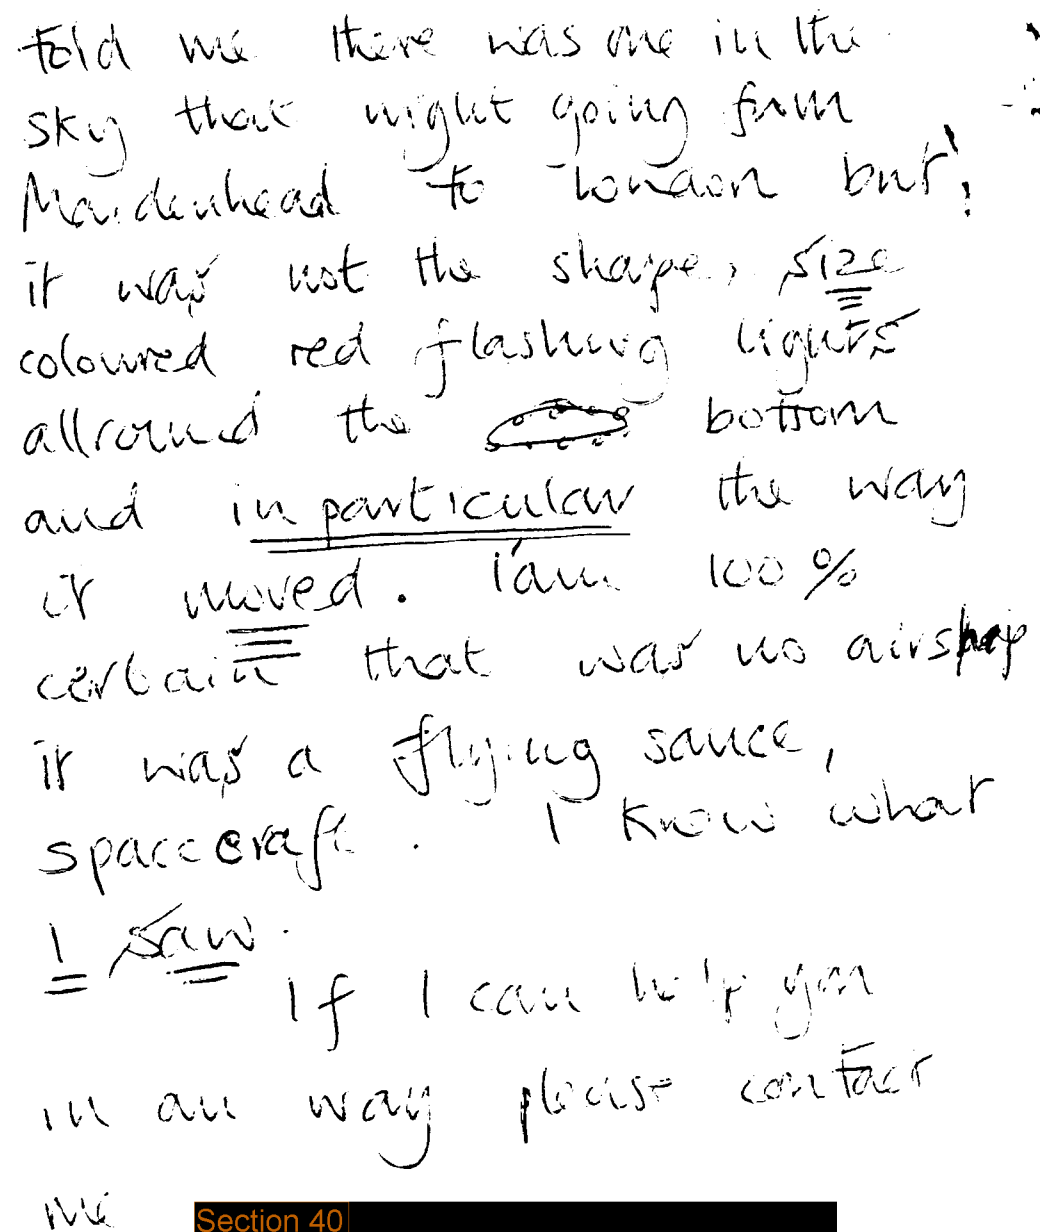 told me there was one in the
sky that night going from
Maidenhead to London but,
it was not the shape, size
coloured red flashing lights
allround the bottom
and in particular the way
it moved. I'am 100%
certain that was no airship
it was a flying sauce,
spacecraft. I know what
I saw.
If I can help you
in an way please contact
me
Section 40